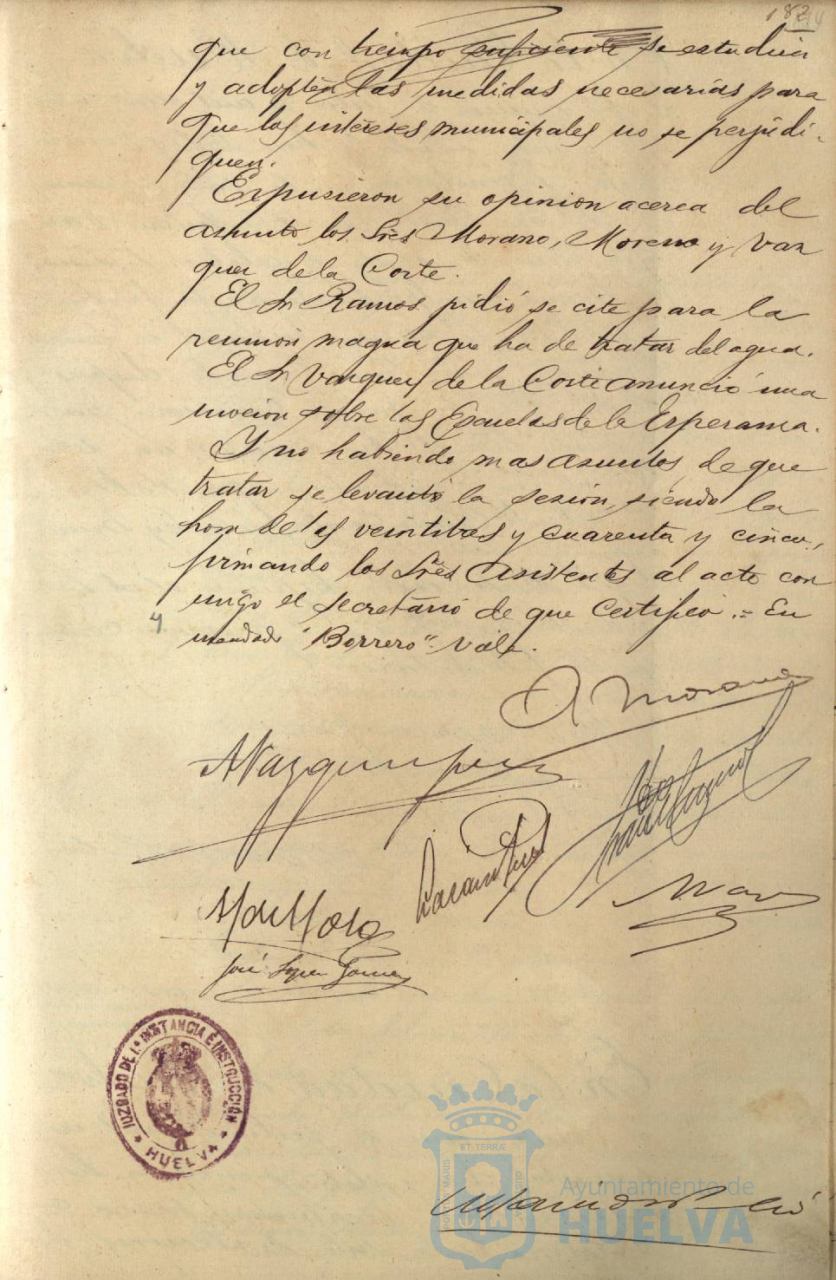 182
que con tiempo suficiente se estudien
y adopten las medidas necesarias para
que los intereses municipales no se perjudi-
quen.
Expusieron su opinion acerca del
asunto los Sres Morano, Moreno y Vaz
quez de la Corte.
El Sr Ramos pidió se cite para la
reunion magna que ha de tratar del agua.
El Sr Vazquez de la Corte anunció una
mocion sobre las Escuelas de la Esperanza.
Y no habiendo mas asuntos de que
tratar se levantó la sesion, siendo la
hora de las veintitres y cuarenta y cinco,
firmando los Sres asistentes al acto con
migo el secretario de que certifico.= En
mendado "Borrero"= Vale.
A Morano
A Vazquez
José Lopez Gomez
JUZGADO DE 1ª INSTANCIA E INSTRUCCIÓN
HUELVA
Ayuntamiento de
HUELVA